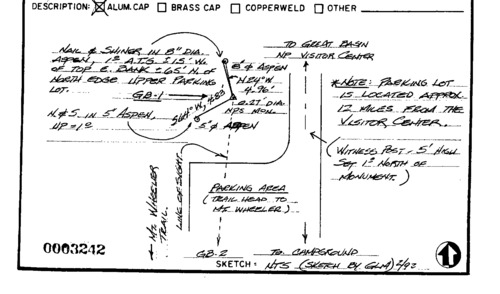 DESCRIPTION: ☒ ALUM. CAP ☐ BRASS CAP ☐ COPPERWELD ☐ OTHER
NAIL & SHINER IN 8" DIA.
ASPEN, 1° A.T.G. ± 15' W.
OF TOP E. BANK ± 65' N. OF
NORTH EDGE UPPER PARKING
LOT.
GB-1
N. & S. IN 5" ASPEN,
UP = 1°
8" ASPEN
N 24° W
4.96'
0.27' DIA.
NPS MON.
S 64° W, 4.83'
5" ASPEN
TO GREAT BASIN
NP VISITOR CENTER
* NOTE: PARKING LOT
IS LOCATED APPROX.
12 MILES FROM THE
VISITOR CENTER.
(WITNESS POST - 5' HIGH
SET 1° NORTH OF
MONUMENT.)
PARKING AREA
(TRAIL HEAD TO
MT. WHEELER)
MT. WHEELER
TRAIL
LINE OF SIGHT
0003242
GB-2
TO CAMPGROUND
SKETCH: NTS (SKETCH BY GLM)